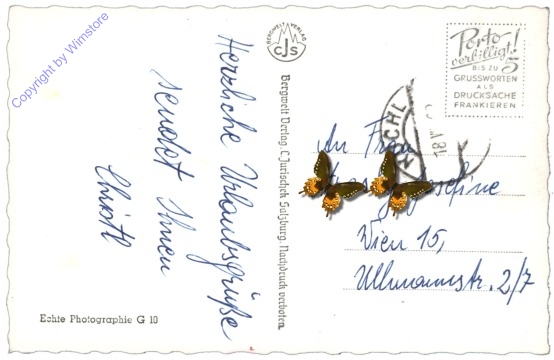 Copyright by Wimstore
Herzliche Urlaubsgrüße
sendet Ihnen
Christl
Echte Photographie G 10
BERGWELT VERLAG
CJS
Bergwelt Verlag, C. Jurischek Salzburg. Nachdruck verboten.
Porto
verbilligt!
BIS ZU 5
GRUSSWORTEN
ALS
DRUCKSACHE
FRANKIEREN
An Frau
Wien 15,
Ullmannstr. 2/7